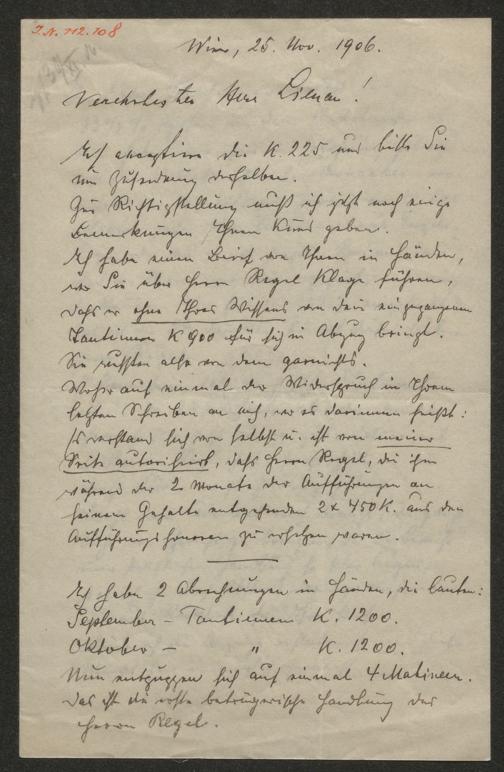 I.N. 112.708
Wien, 25. Nov. 1906.
Verehrtester Herr Liman!
Ich acceptiere die K. 225 und bitte Sie
um Zusendung derselben.
Zur Richtigstellung muß ich jetzt noch einige
Bemerkungen Ihnen kund geben.
Ich habe einen Brief von Ihnen in Händen,
wo Sie über Herrn Regel Klage führen,
daß er ohne Ihres Wissens von den eingegangenen
Tantiemen K 900 für sich in Abzug bringt.
Sie wussten also von dem garnichts.
Woher auf einmal der Widerspruch in Ihrem
letzten Schreiben an mich, wo es darinnen heißt:
Es verstand sich von selbst u. ist von meiner
Seite autorisiert, daß Herrn Regel, die ihm
während der 2 Monate der Aufführungen an
seinem Gehalte entgehenden 2 x 450 K. aus den
Aufführungshonoraren zu ersetzen waren.
Ich habe 2 Abrechnungen in Händen, die lauten:
September – Tantiemen K. 1200.
Oktober – " K. 1200.
Nun entpuppen sich auf einmal 4 Matineen.
Das ist die erste betrügerische Handlung des
Herrn Regel.